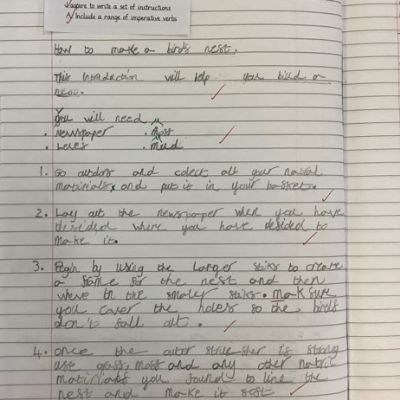 aspire to write a set of instructions
Include a range of imperative verbs
How to make a birds nest.
This Introduction will help you biuld a
nest.
You will need
• Newspaper • Moss
• Leves • mud
1. Go outdors and colect all your natral
matirials, and put it in your basket.
2. Lay out the newspaper when you have
decided where you have desided to
make it.
3. Begin by using the larger stiks to create
a frame for the nest and then
weave in the smaler stiks. Make sure
you cover the holes so the birds
don't fall out.
4. once the outer is strong
use gass, moss and any other
you found to line the
nest and make it soft